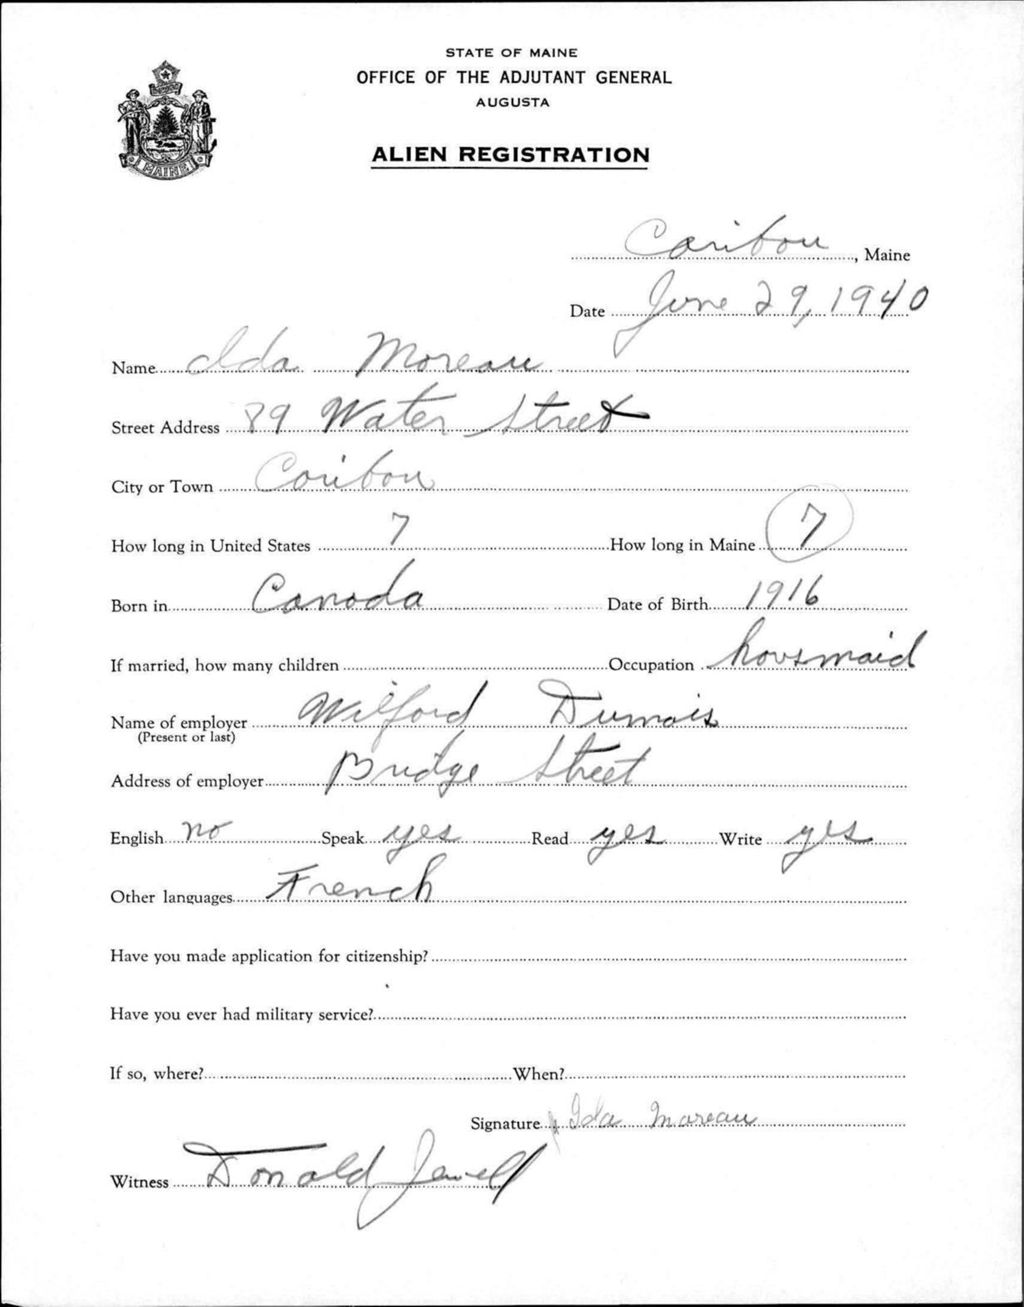 STATE OF MAINE
OFFICE OF THE ADJUTANT GENERAL
AUGUSTA
ALIEN REGISTRATION
MAINE
Caribou, Maine
Date June 29, 1940
Name Ida Moreau
Street Address 89 Water Street
City or Town Caribou
How long in United States 7 How long in Maine 7
Born in Canada Date of Birth 1916
If married, how many children Occupation housmaid
Name of employer Wilford Dumais
(Present or last)
Address of employer Bridge Street
English no Speak yes Read yes Write yes
Other languages French
Have you made application for citizenship?
Have you ever had military service?
If so, where? When?
Signature Ida Moreau
Witness Donald Jewell